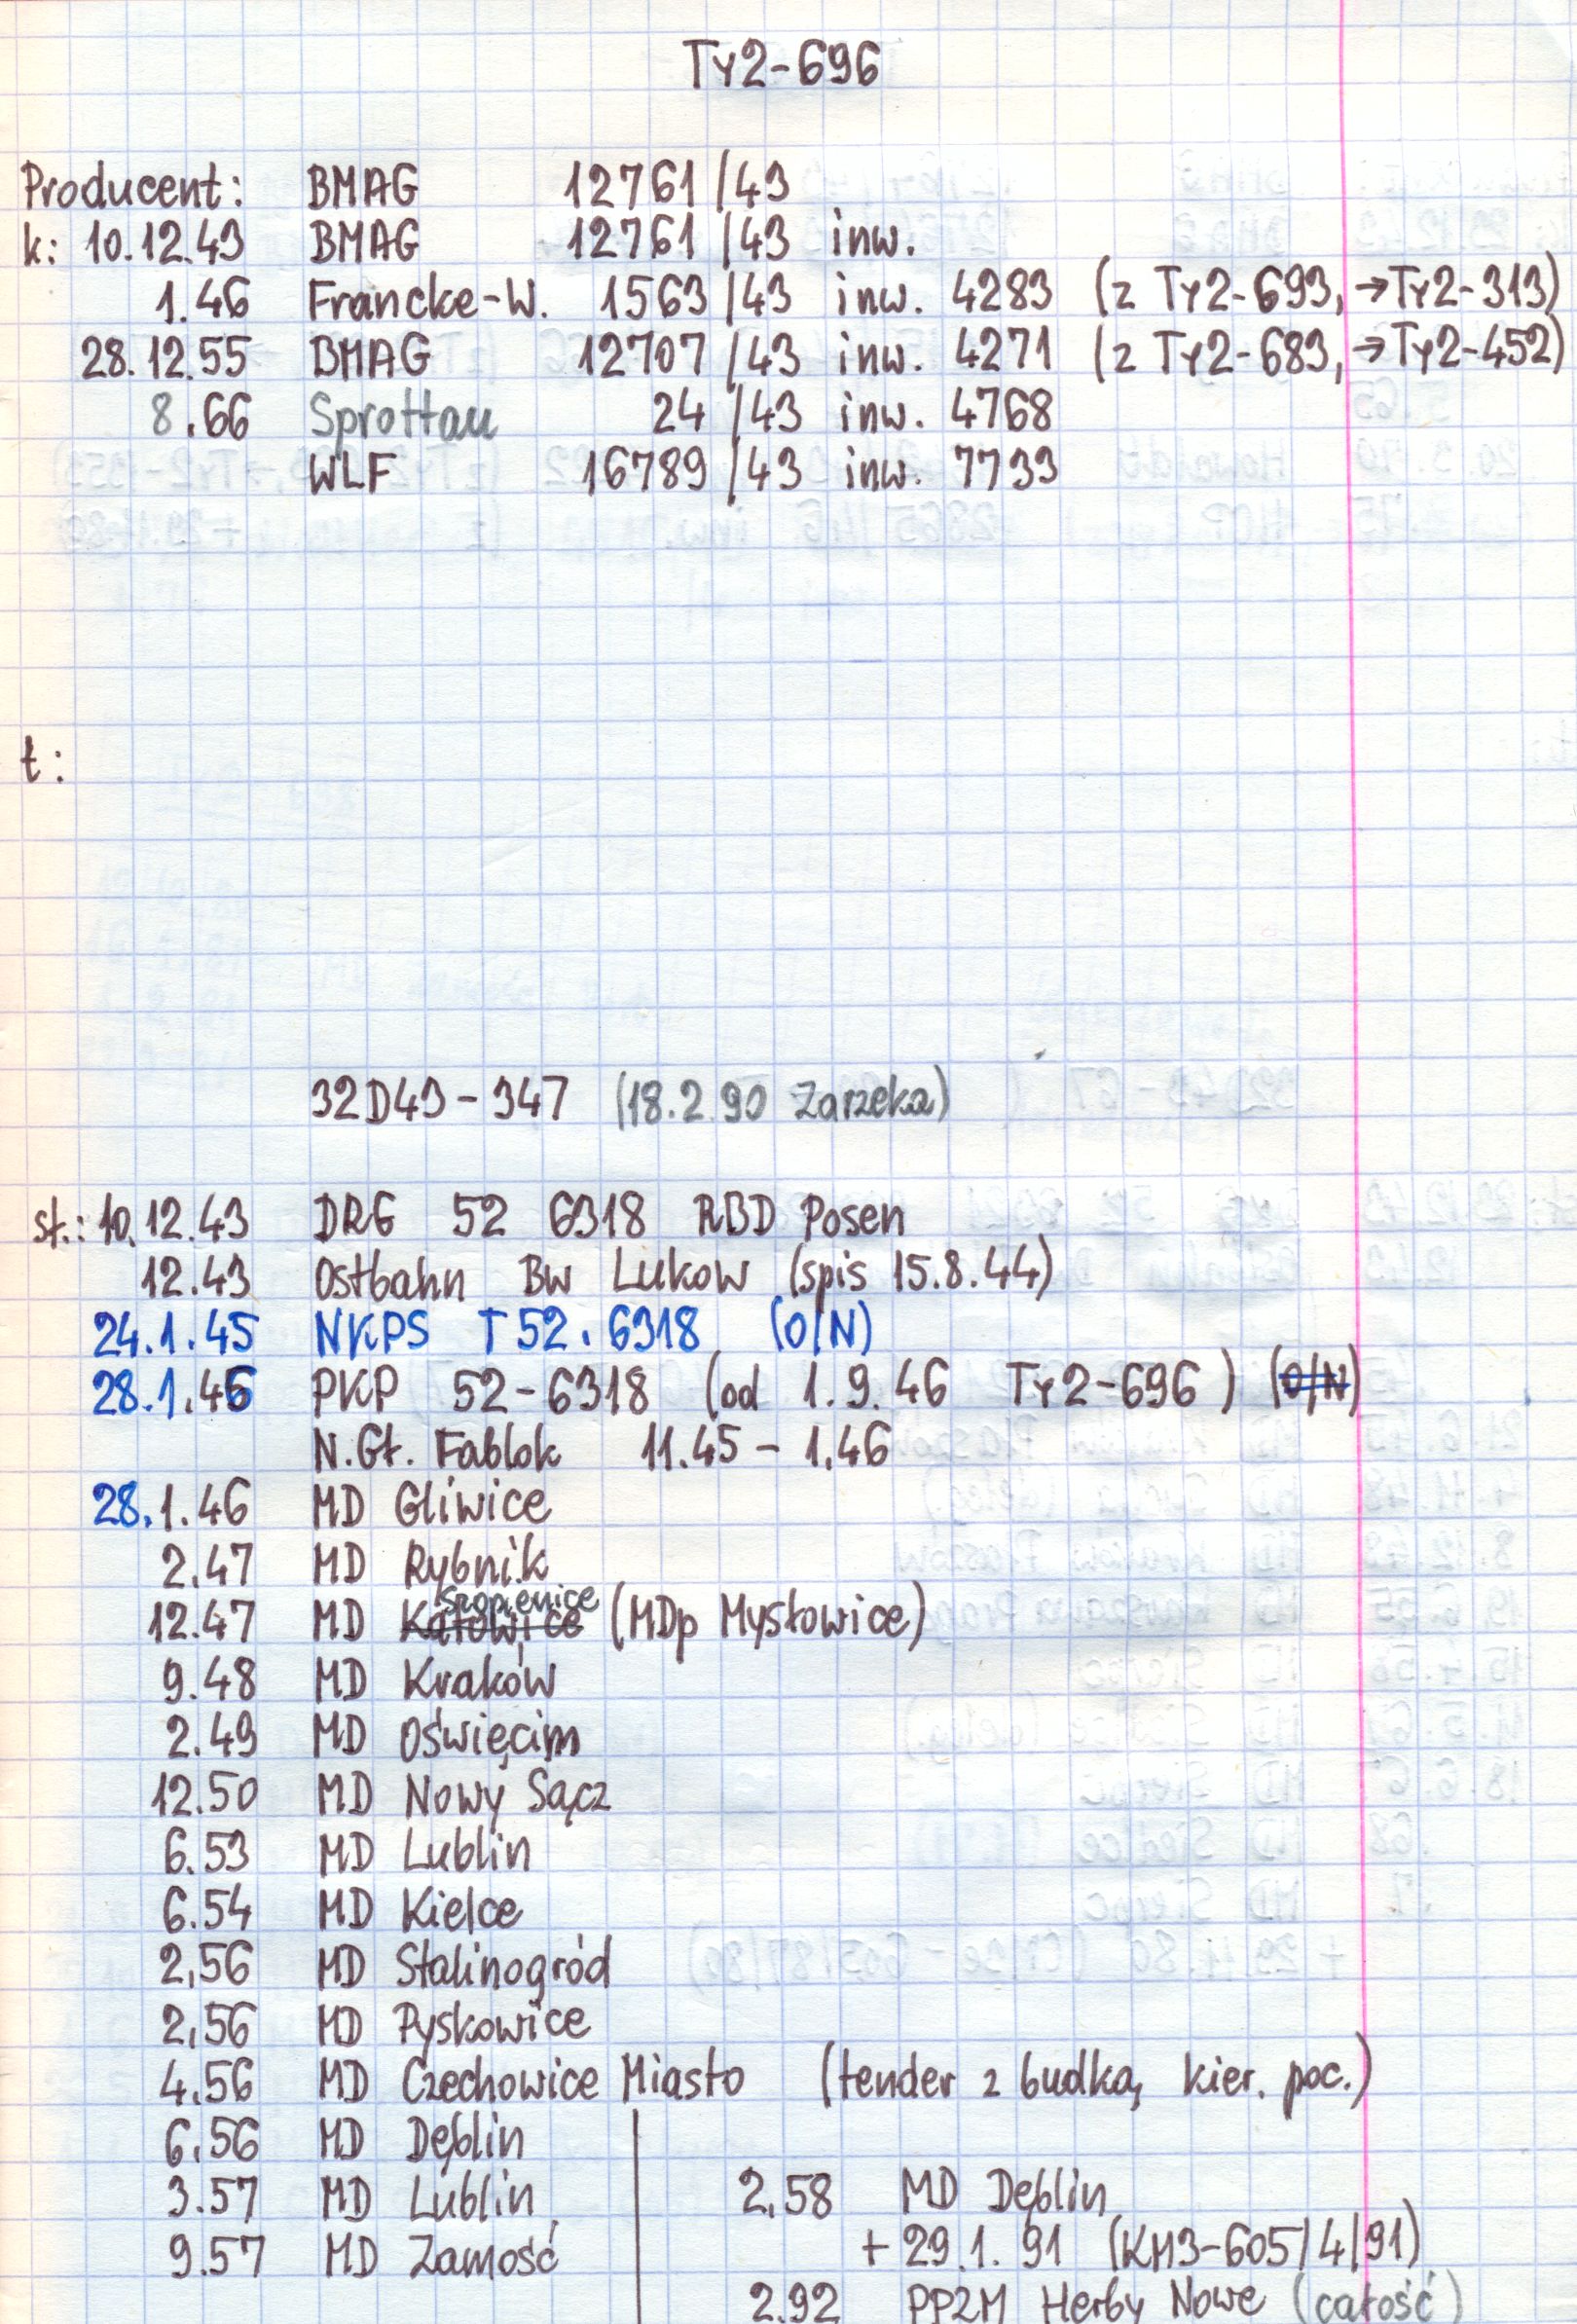 Ty2-696
Producent: BMAG 12761/43
k: 10.12.43 BMAG 12761/43 inw.
1.46 Francke-W. 1563/43 inw. 4283 (z Ty2-693, →Ty2-313)
28.12.55 BMAG 12707/43 inw. 4271 (z Ty2-683, →Ty2-452)
8.66 Sprottau 24/43 inw. 4768
WLF 16789/43 inw. 7733
t:
32D43-347 (18.2.90 Zarzeka)
st.: 10.12.43 DRG 52 6318 RBD Posen
12.43 Ostbahn Bw Lukow (spis 15.8.44)
24.1.45 NKPS T52.6318 (O/N)
28.1.46 PKP 52-6318 (od 1.9.46 Ty2-696) (O/N)
N.Gł. Fablok 11.45-1.46
28.1.46 MD Gliwice
2.47 MD Rybnik
12.47 MD Katowice Szopienice (MDp Mysłowice)
9.48 MD Kraków
2.49 MD Oświęcim
12.50 MD Nowy Sącz
6.53 MD Lublin
6.54 MD Kielce
2.56 MD Stalinogród
2.56 MD Pyskowice
4.56 MD Czechowice Miasto (tender z budką kier. poc.)
6.56 MD Dęblin
3.57 MD Lublin
9.57 MD Zamość
2.58 MD Dęblin
+29.1.91 (KM3-605/4/91)
2.92 PPZM Herby Nowe (całość)